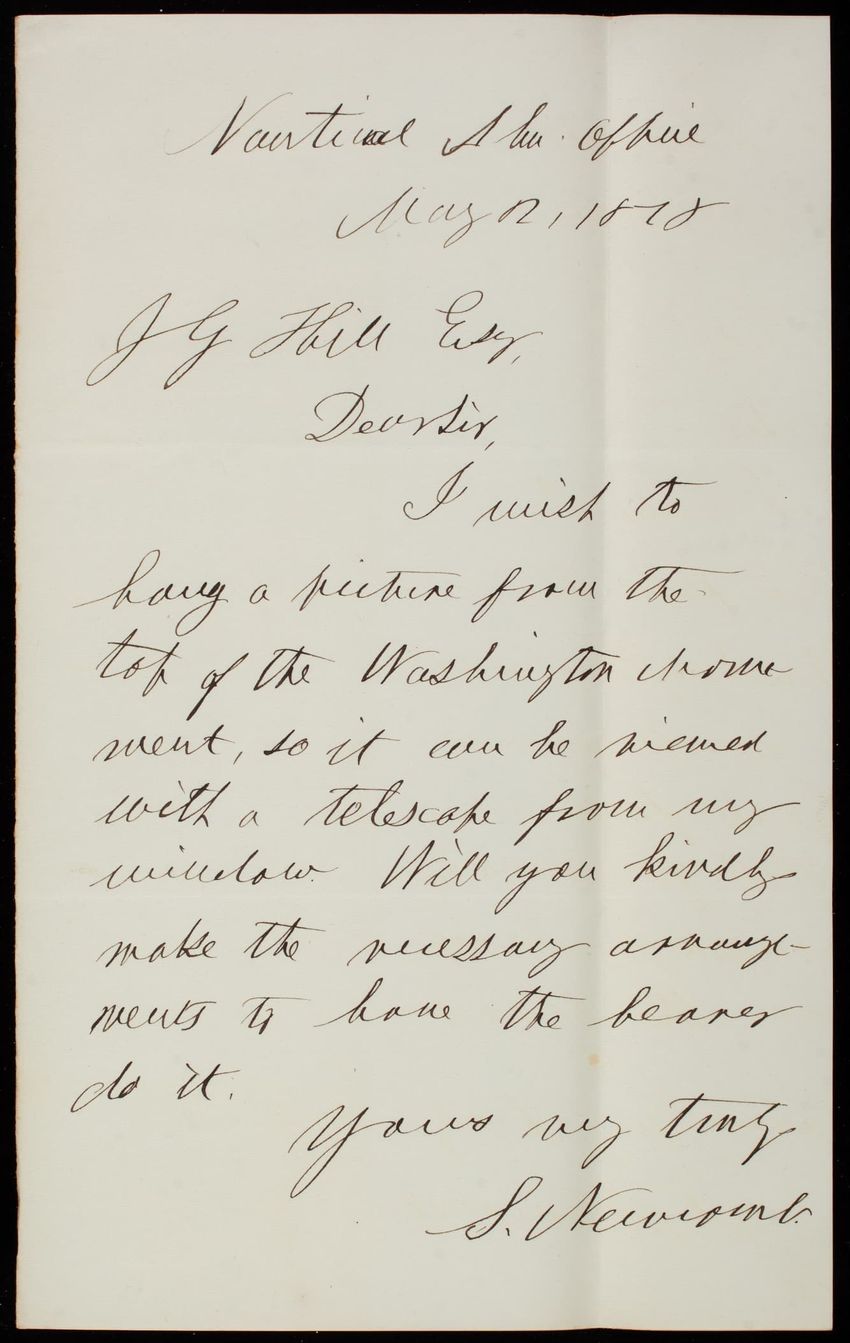 Nautical Alm. Office
May 2, 1878
J G Hill Esq,
Dear Sir,
I wish to
hang a picture from the
top of the Washington Monu
ment, so it can be viewed
with a telescope from my
window. Will you kindly
make the necessary arrange-
ments to have the bearer
do it.
Yours very truly
S. Newcomb.